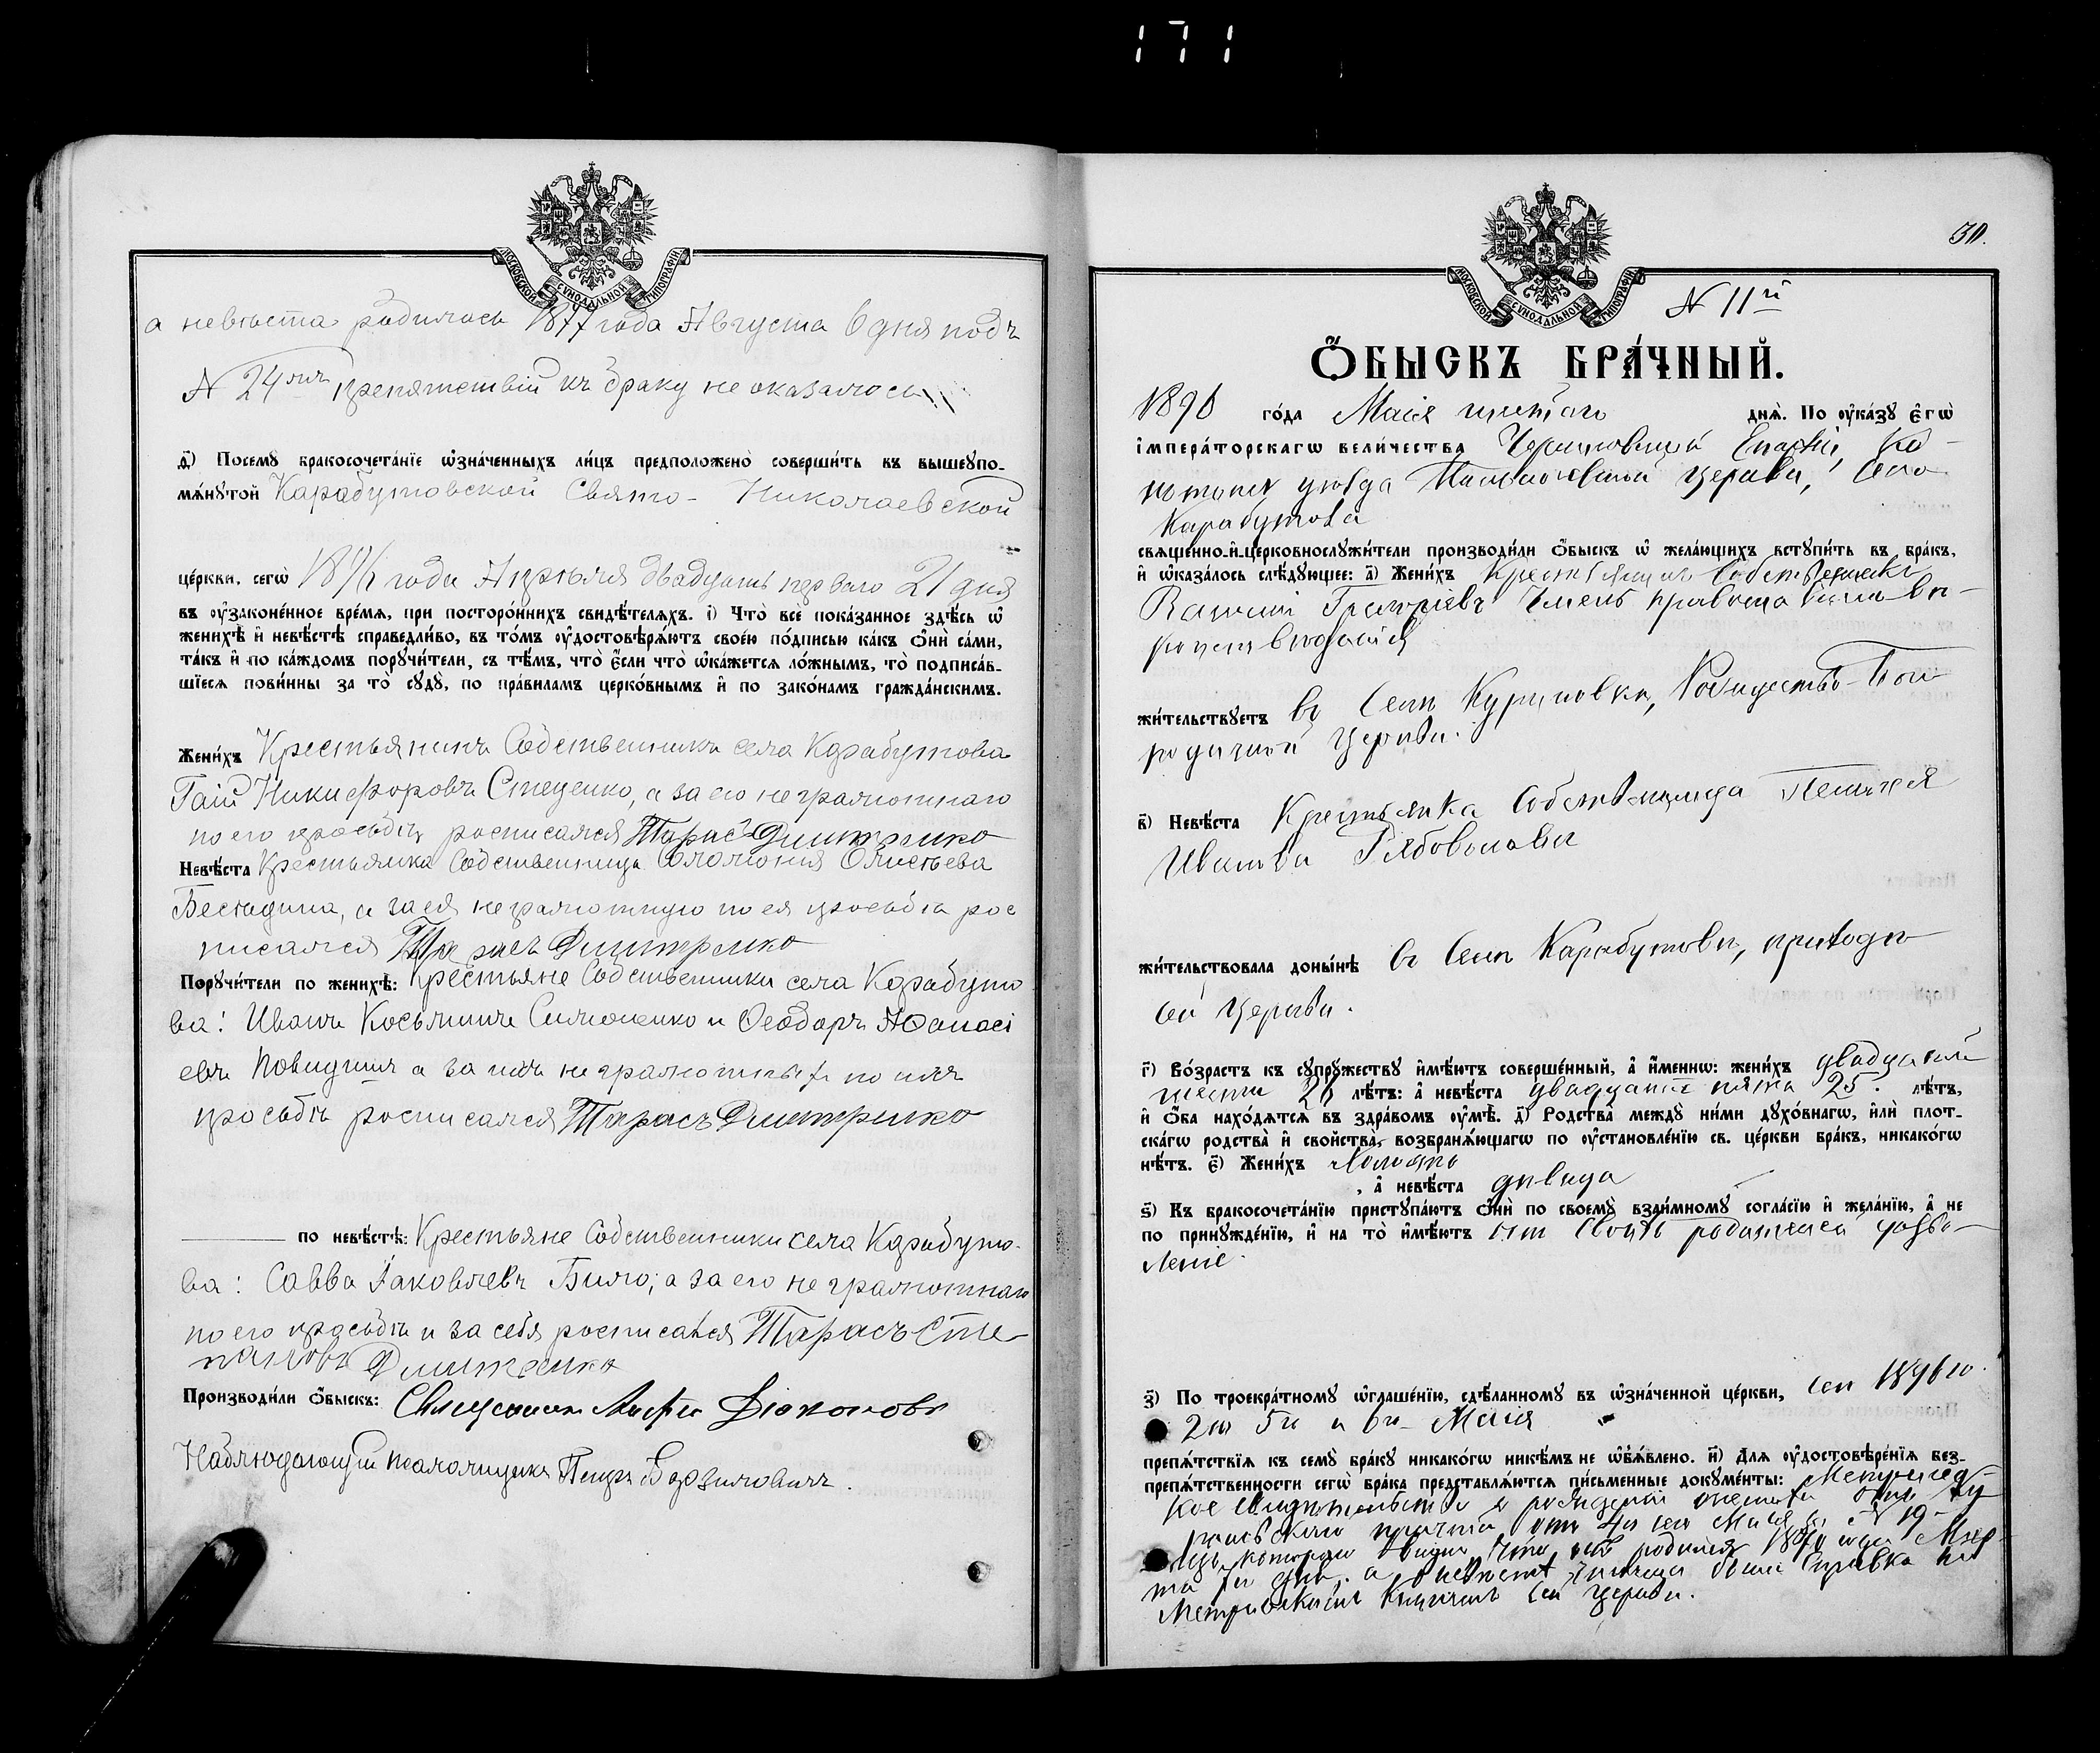 171
МОСКОВСКОЙ СѴНОДАЛЬНОЙ ТИПОГРАФІИ.
а невѣста родилась 1877 года Августа 6 дня подъ
№ 24 препятствій къ браку не оказалось
д҃) Посемꙋ бракосочета́нїе ѡ҆зна́ченныхъ ли́цъ предположено̀ соверши́ть въ вышеꙋпо-
мѧ́нꙋтой Карабутовской Свято-Николаевской
це́ркви, сегѡ̀ 1896 года Апрѣля двадцать перваго 21 дня
въ ᲂу҆законе́нное вре́мѧ, при посторо́ннихъ свидѣ́телѧхъ. і҃) Что̀ всѐ пока́занное здѣ́сь ѡ҆
женихѣ̀ и҆ невѣ́стѣ справедли́во, въ то́мъ ᲂу҆достовѣрѧ́ютъ свое́ю по́дписью ка́къ ѻ҆нѝ са́ми,
та́къ и҆ по ка́ждомъ порꙋчи́тели, съ тѣ́мъ, что̀ є҆́сли что̀ ѡ҆ка́жется ло́жнымъ, то̀ подписа́в-
шїеся пови́нны за то̀ сꙋдꙋ̀, по пра́виламъ церко́внымъ и҆ по зако́намъ гражда́нскимъ.
Жени́хъ Крестьянинъ Собственникъ села Карабутова
Гаій Никифоровъ Стеценко, а за его неграмотнаго
по его просьбѣ росписался Тарасъ Дмитренко
Невѣ́ста Крестьянка Собственница Соломонія Елисѣева
Бесѣдина, а за ея неграмотную по ея просьбѣ рос
писался Тарасъ Дмитренко
Порꙋчи́тели по женихѣ̀: Крестьяне Собственники села Карабуто
ва: Иванъ Косьминъ Симоненко и Ѳеодоръ Аѳанасі
евъ а за ихъ неграмотныхъ по ихъ
просьбѣ росписался Тарасъ Дмитренко
по невѣ́стѣ: Крестьяне Собственники села Карабуто-
ва: Савва Іаковлевъ Било; а за его неграмотнаго
по его просьбѣ и за себя росписался Тарасъ Сте-
пановъ Дмитренко
Производи́ли ѻ҆́быскъ: Священникъ Діаконовъ
Наблюдающій псаломщикъ Петръ
30.
МОСКОВСКОЙ СѴНОДАЛЬНОЙ ТИПОГРАФІИ.
№ 11й
Ѻ҆́БЫСКЪ БРА́ЧНЫЙ.
1896 го́да Маія шестаго днѧ̀. По ᲂу҆ка́зꙋ є҆гѡ̀
і҆мпера́торскагѡ вели́чества Черниговской Епархіи, Ко-
нотопск уѣзда Николаевской церкви, села
Карабутова
свѧще́нно-и҆-церковнослꙋжи́тели производи́ли ѻ҆́быскъ ѡ҆ жела́ющихъ встꙋпи́ть въ бра́къ,
и҆ ѡ҆каза́лось слѣ́дꙋющее: а҃) Жени́хъ Крестьянинъ Собственникъ
Василій Григоріевъ православнаго вѣ-
роисповѣданія
жи́тельствꙋетъ въ селѣ Куриловкѣ, Рождество-Бого
родичной церкви.
в҃) Невѣ́ста Крестьянка Собственница Пелагея
Иванова Рябоволова
жи́тельствовала доны́нѣ въ селѣ Карабутовѣ, приходѣ
сей церкви.
г҃) Во́зрастъ къ сꙋпрꙋ́жествꙋ и҆мѣ́ютъ соверше́нный, а҆ и҆́меннѡ: жени́хъ двадцати
шести 26 лѣ́тъ: а҆ невѣ́ста двадцати пяти 25. лѣ́тъ,
и҆ ѻ҆́ба нахо́дѧтсѧ въ здра́вомъ ᲂу҆мѣ̀. д҃) Родства̀ междꙋ ни́ми дꙋхо́внагѡ, и҆лѝ пло́т-
скагѡ родства̀ и҆ сво́йства̀, возбранѧ́ющагѡ по ᲂу҆становле́нїю св. це́ркви бра́къ, никако́гѡ
нѣ́тъ. є҃) Жени́хъ холостъ
, а҆ невѣ́ста дѣвица
ѕ҃) Къ бракосочета́нїю пристꙋпа́ютъ ѻ҆нѝ по своемꙋ̀ взаи́мномꙋ согла́сїю и҆ жела́нїю, а҆ не
по принꙋжде́нїю, и҆ на то̀ и҆мѣ́ютъ отъ своихъ родителей дозво-
леніе.
з҃) По троекра́тномꙋ ѡ҆глаше́нїю, сдѣ́ланномꙋ въ ѡ҆зна́ченной це́ркви, сего 1896 го.
2го 5го и 6го Маія
препѧ́тствїѧ къ семꙋ̀ бра́кꙋ никако́гѡ никѣ́мъ не ѡ҆б̾ѧ́влено. и҃) Длѧ ᲂу҆достовѣре́нїѧ без-
препѧ́тственности сегѡ̀ бра́ка представлѧ́ютсѧ пи́сьменные докꙋме́нты: Метричес-
кое свидѣтельство о рожденіи жениха отъ Ку
риловскаго причта отъ 4го сего Маія за № 19-
изъ котораго видно, что онъ родился 1870 года Мар
та дня. а о невѣстѣ была справка по
Метрическимъ книгамъ сей церкви.